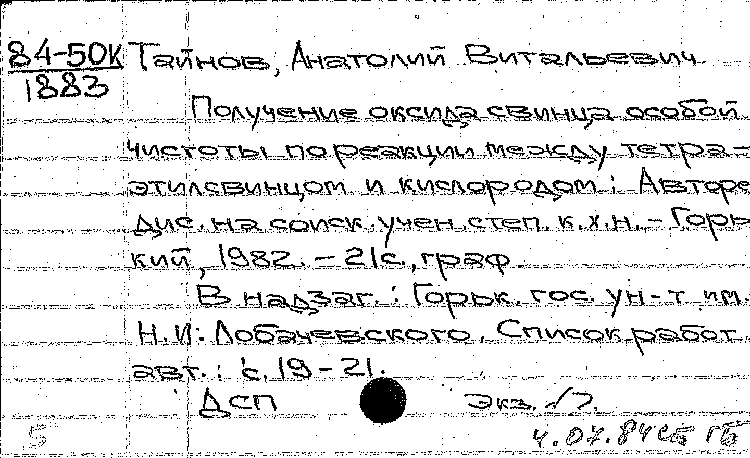 84-50к Тайнов, Анатолий Витальевич
1883
Получение оксида свинца особой
чистоты по реакции между тетра-
этилсвинцом и кислородом: Авторе
дис. на соиск. учен. степ. к.х.н. - Горь-
кий, 1982. - 21с., граф.
В надзаг.: Горьк. гос. ун-т им.
Н.И. Лобачевского. Список работ
авт.: с. 19-21.
ДСП Экз.
5 4.07.84 ГБ